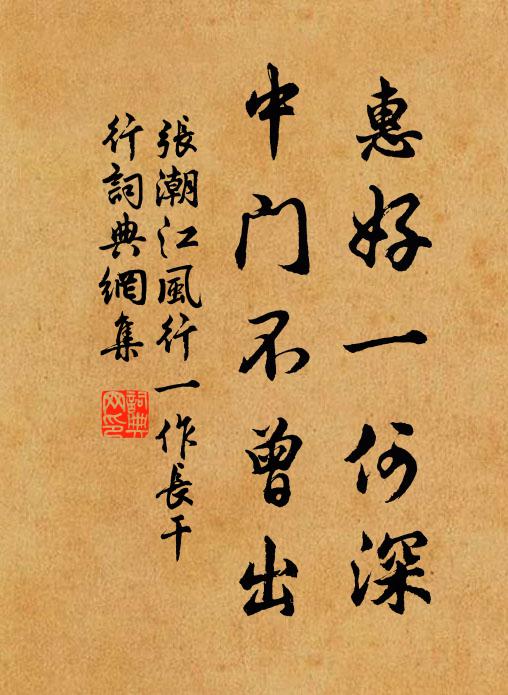 惠好一何深
中門不曾出
張潮江風行一作長干
行詞典網集
詞典
网印